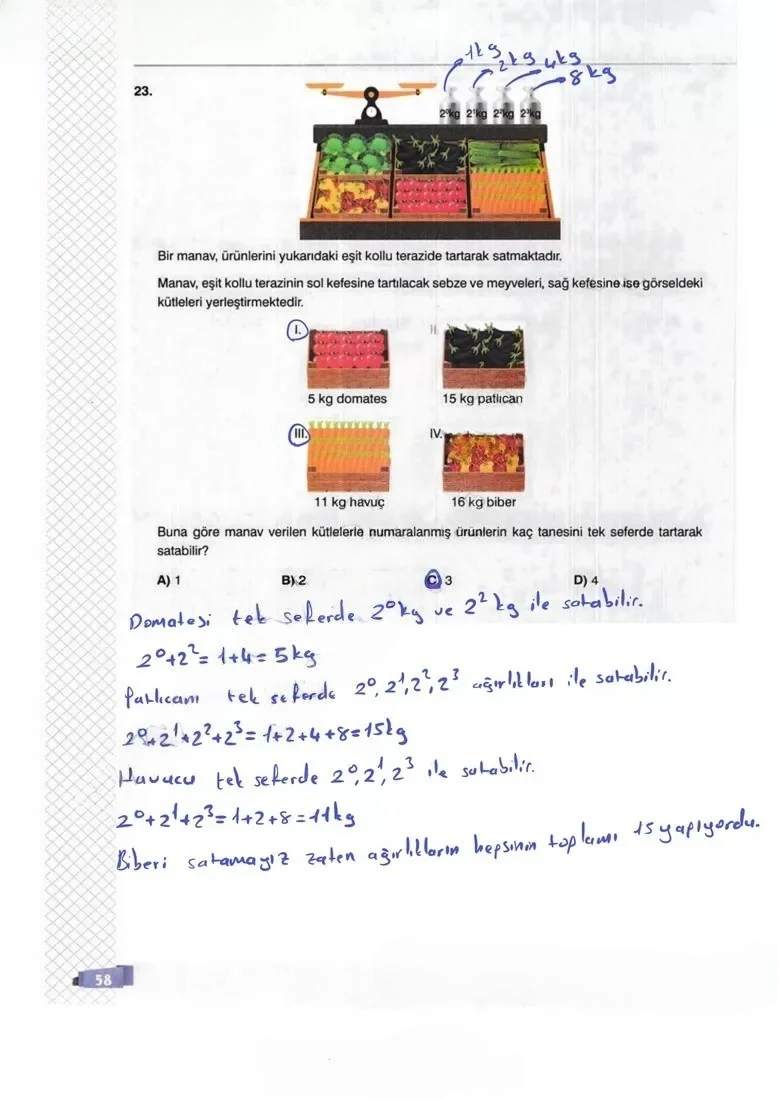 1kg 2kg 4kg 8kg
23.
2⁰kg 2¹kg 2²kg 2³kg
Bir manav, ürünlerini yukarıdaki eşit kollu terazide tartarak satmaktadır.
Manav, eşit kollu terazinin sol kefesine tartılacak sebze ve meyveleri, sağ kefesine ise görseldeki
kütleleri yerleştirmektedir.
I. II.
5 kg domates 15 kg patlıcan
III. IV.
11 kg havuç 16 kg biber
Buna göre manav verilen kütlelerle numaralanmış ürünlerin kaç tanesini tek seferde tartarak
satabilir?
A) 1 B) 2 C) 3 D) 4
Domatesi tek seferde 2⁰kg ve 2² kg ile satabilir.
2⁰+2²= 1+4= 5kg
Patlıcanı tek seferde 2⁰, 2¹, 2², 2³ ağırlıkları ile satabilir.
2⁰+2¹+2²+2³= 1+2+4+8=15kg
Havucu tek seferde 2⁰, 2¹, 2³ ile satabilir.
2⁰+2¹+2³= 1+2+8=11kg
Biberi satamayız zaten ağırlıkların hepsinin toplamı 15 yapıyordu.
58